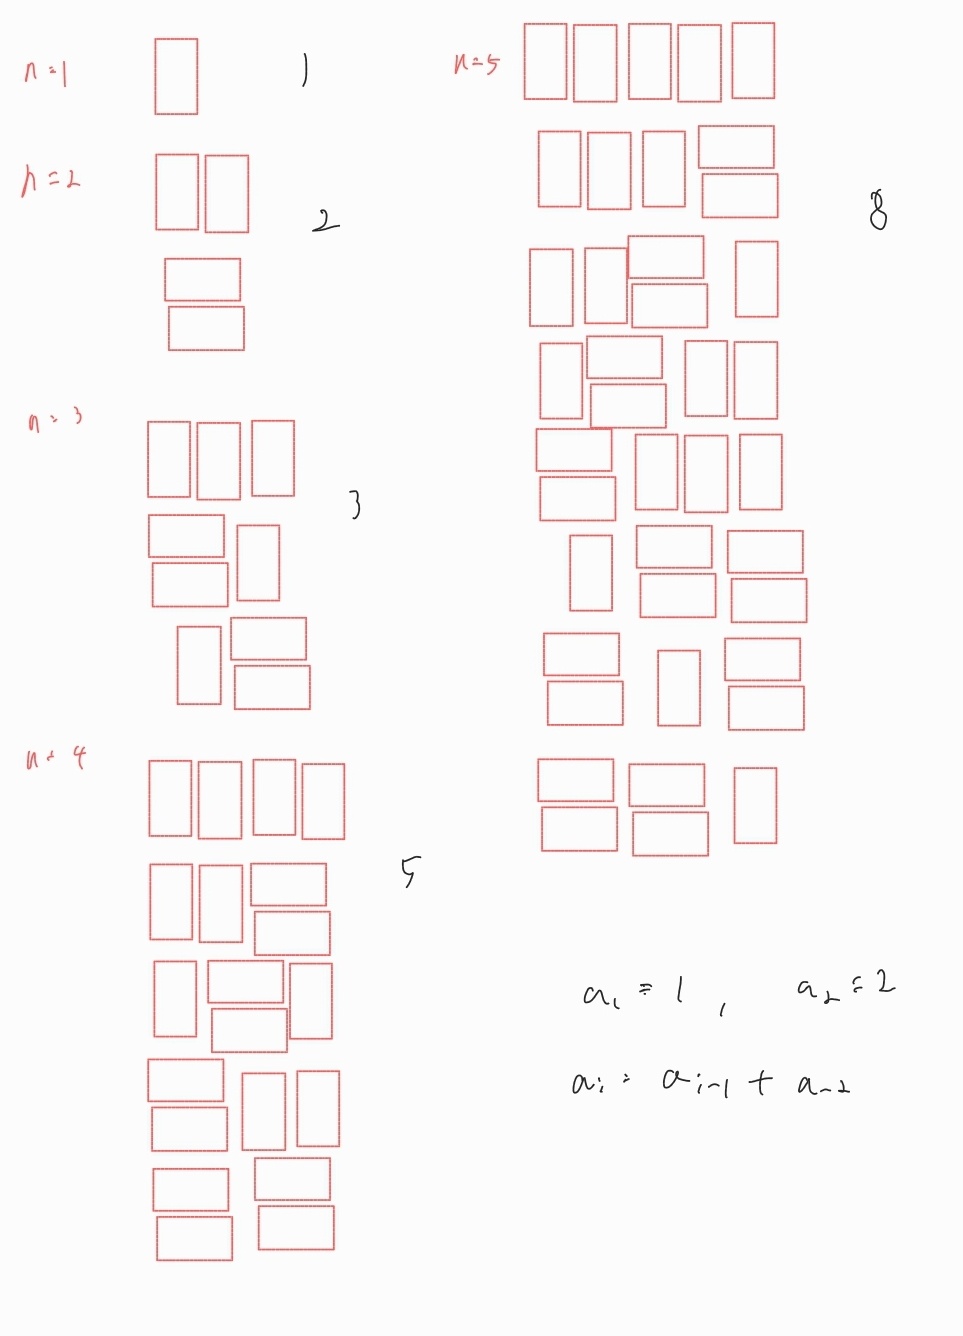 n=1
1
n=2
2
n=3
3
n=4
5
n=5
8
a₁=1, a₂=2
aᵢ=aᵢ₋₁+a₋₂